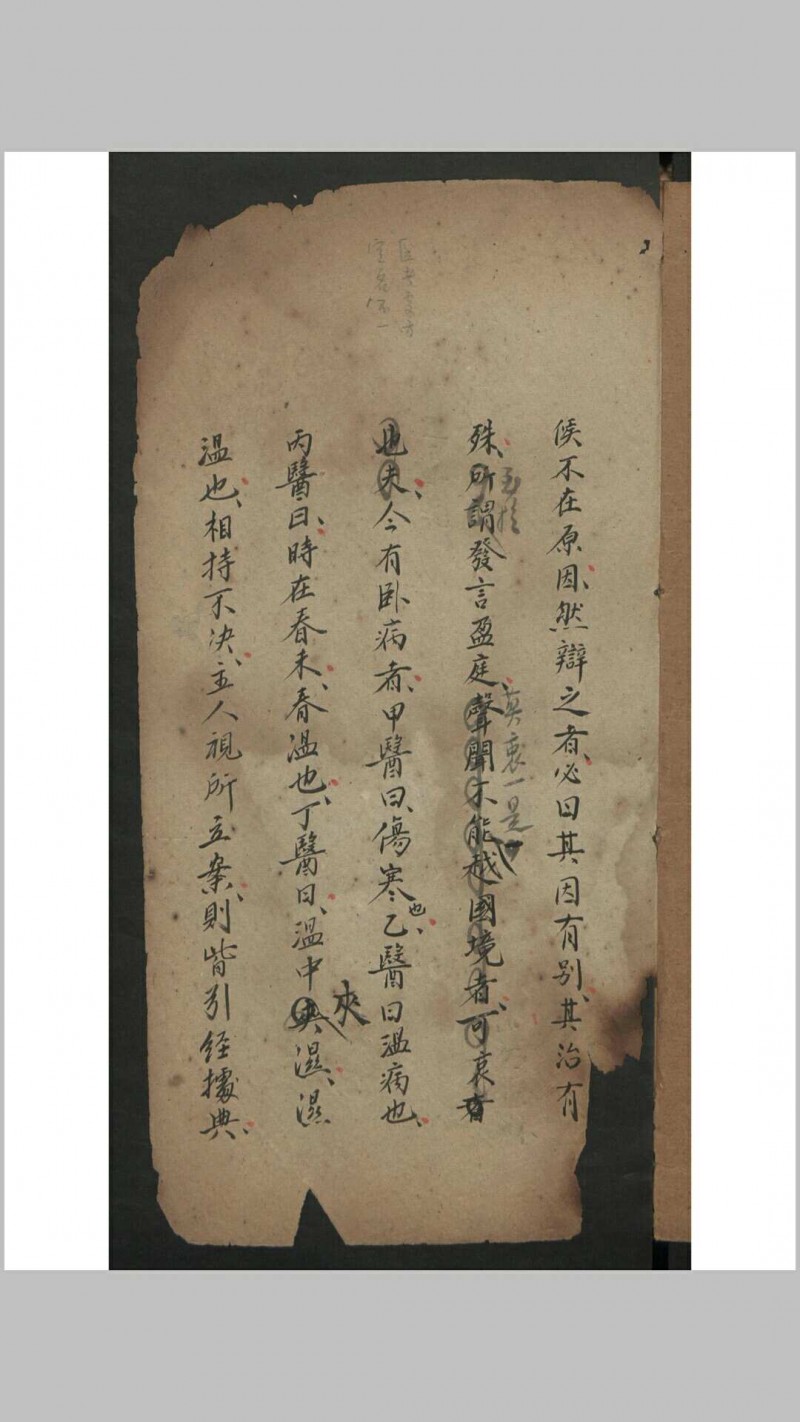 候不在原因、然辯之者、必曰其因有别、其治有
殊、所謂發言盈庭、聲聞不能越國境者、可哀者
至於
莫衷一是
也夫、今有卧病者、甲醫曰、傷寒也、乙醫曰温病也、
丙醫曰、時在春末、春温也、丁醫曰、温中夾濕、濕
温也、相持不决、主人視所立案、則皆引經據典、